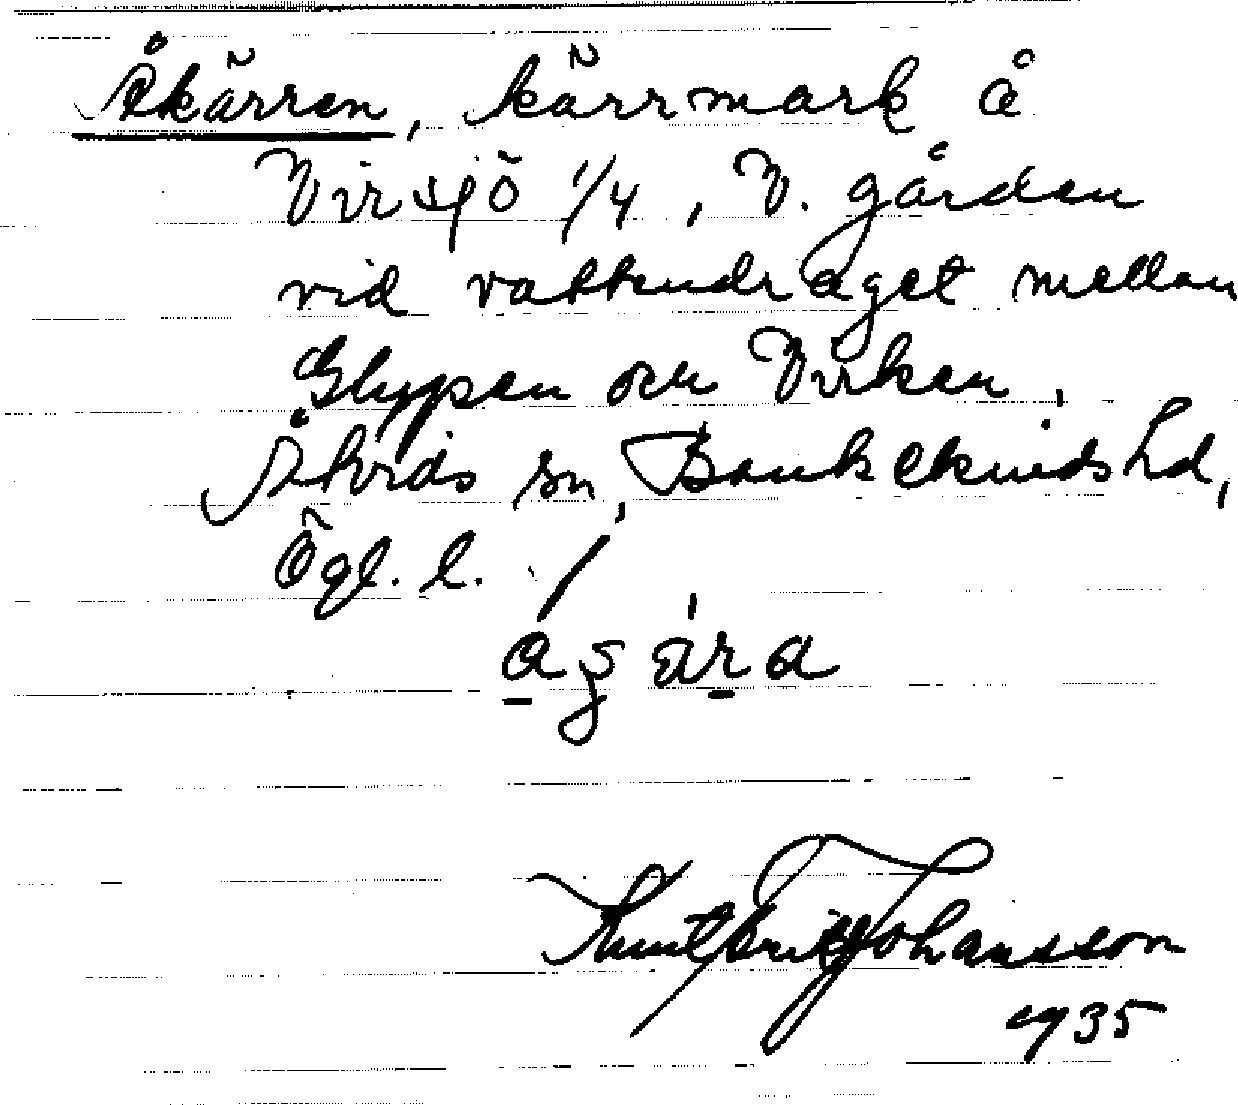 Åkärren, kärrmark å
Virsjö 1/4, V. gården
vid vattendraget mellan
Glypen och Virken,
Åtvids sn, Bankekinds hd,
Ögl. l.
Johansson
1935